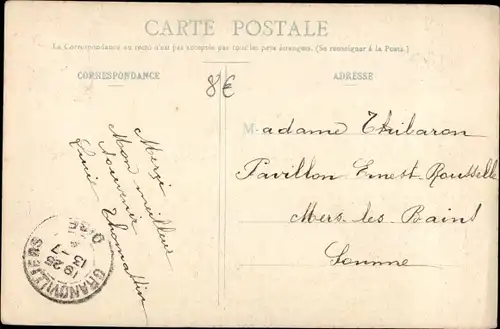 CARTE POSTALE
La Correspondance au recto n'est pas acceptée par tous les pays étrangers. (Se renseigner à la Poste.)
CORRESPONDANCE
ADRESSE
8€
Merçi
Mon meilleur
souvenir
Lucie Thomattin
Madame Thibaron
Pavillon Ernest Rousselle
Mers les Bains
Somme
GRANDVILLI
OISE
19 25
13 -7